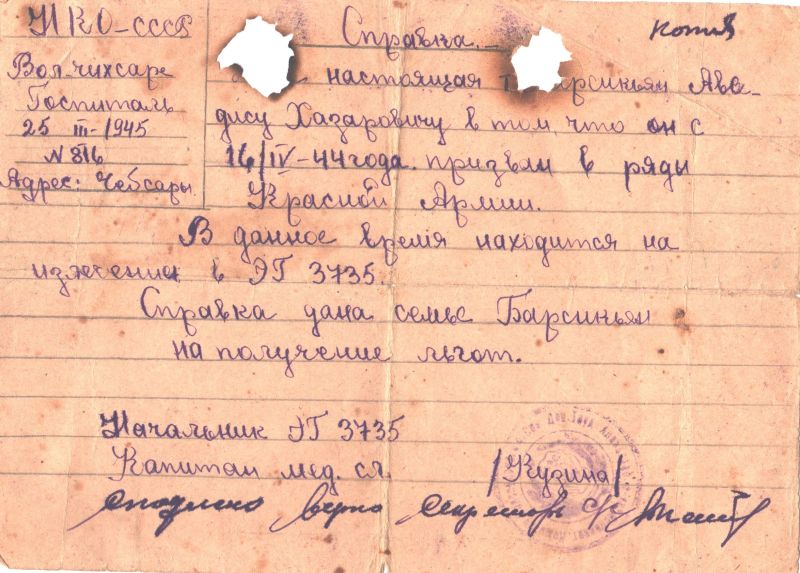 НКО-СССР
Вол-чихсаре
Госпиталь
25 III-1945
N 816
Адрес: Чебсары
Справка.
копия
настоящая Барсикьян Аве-
дису Хазаровичу в том, что он с
16/IV-44 года призван в ряды
Красной Армии.
В данное время находится на
излечении в ЭГ 3735.
Справка дана семье Барсикьян
на получение льгот.
Начальник ЭГ 3735
Капитан мед. сл. /Кузина/.
с подлино верно Секретарь с/с